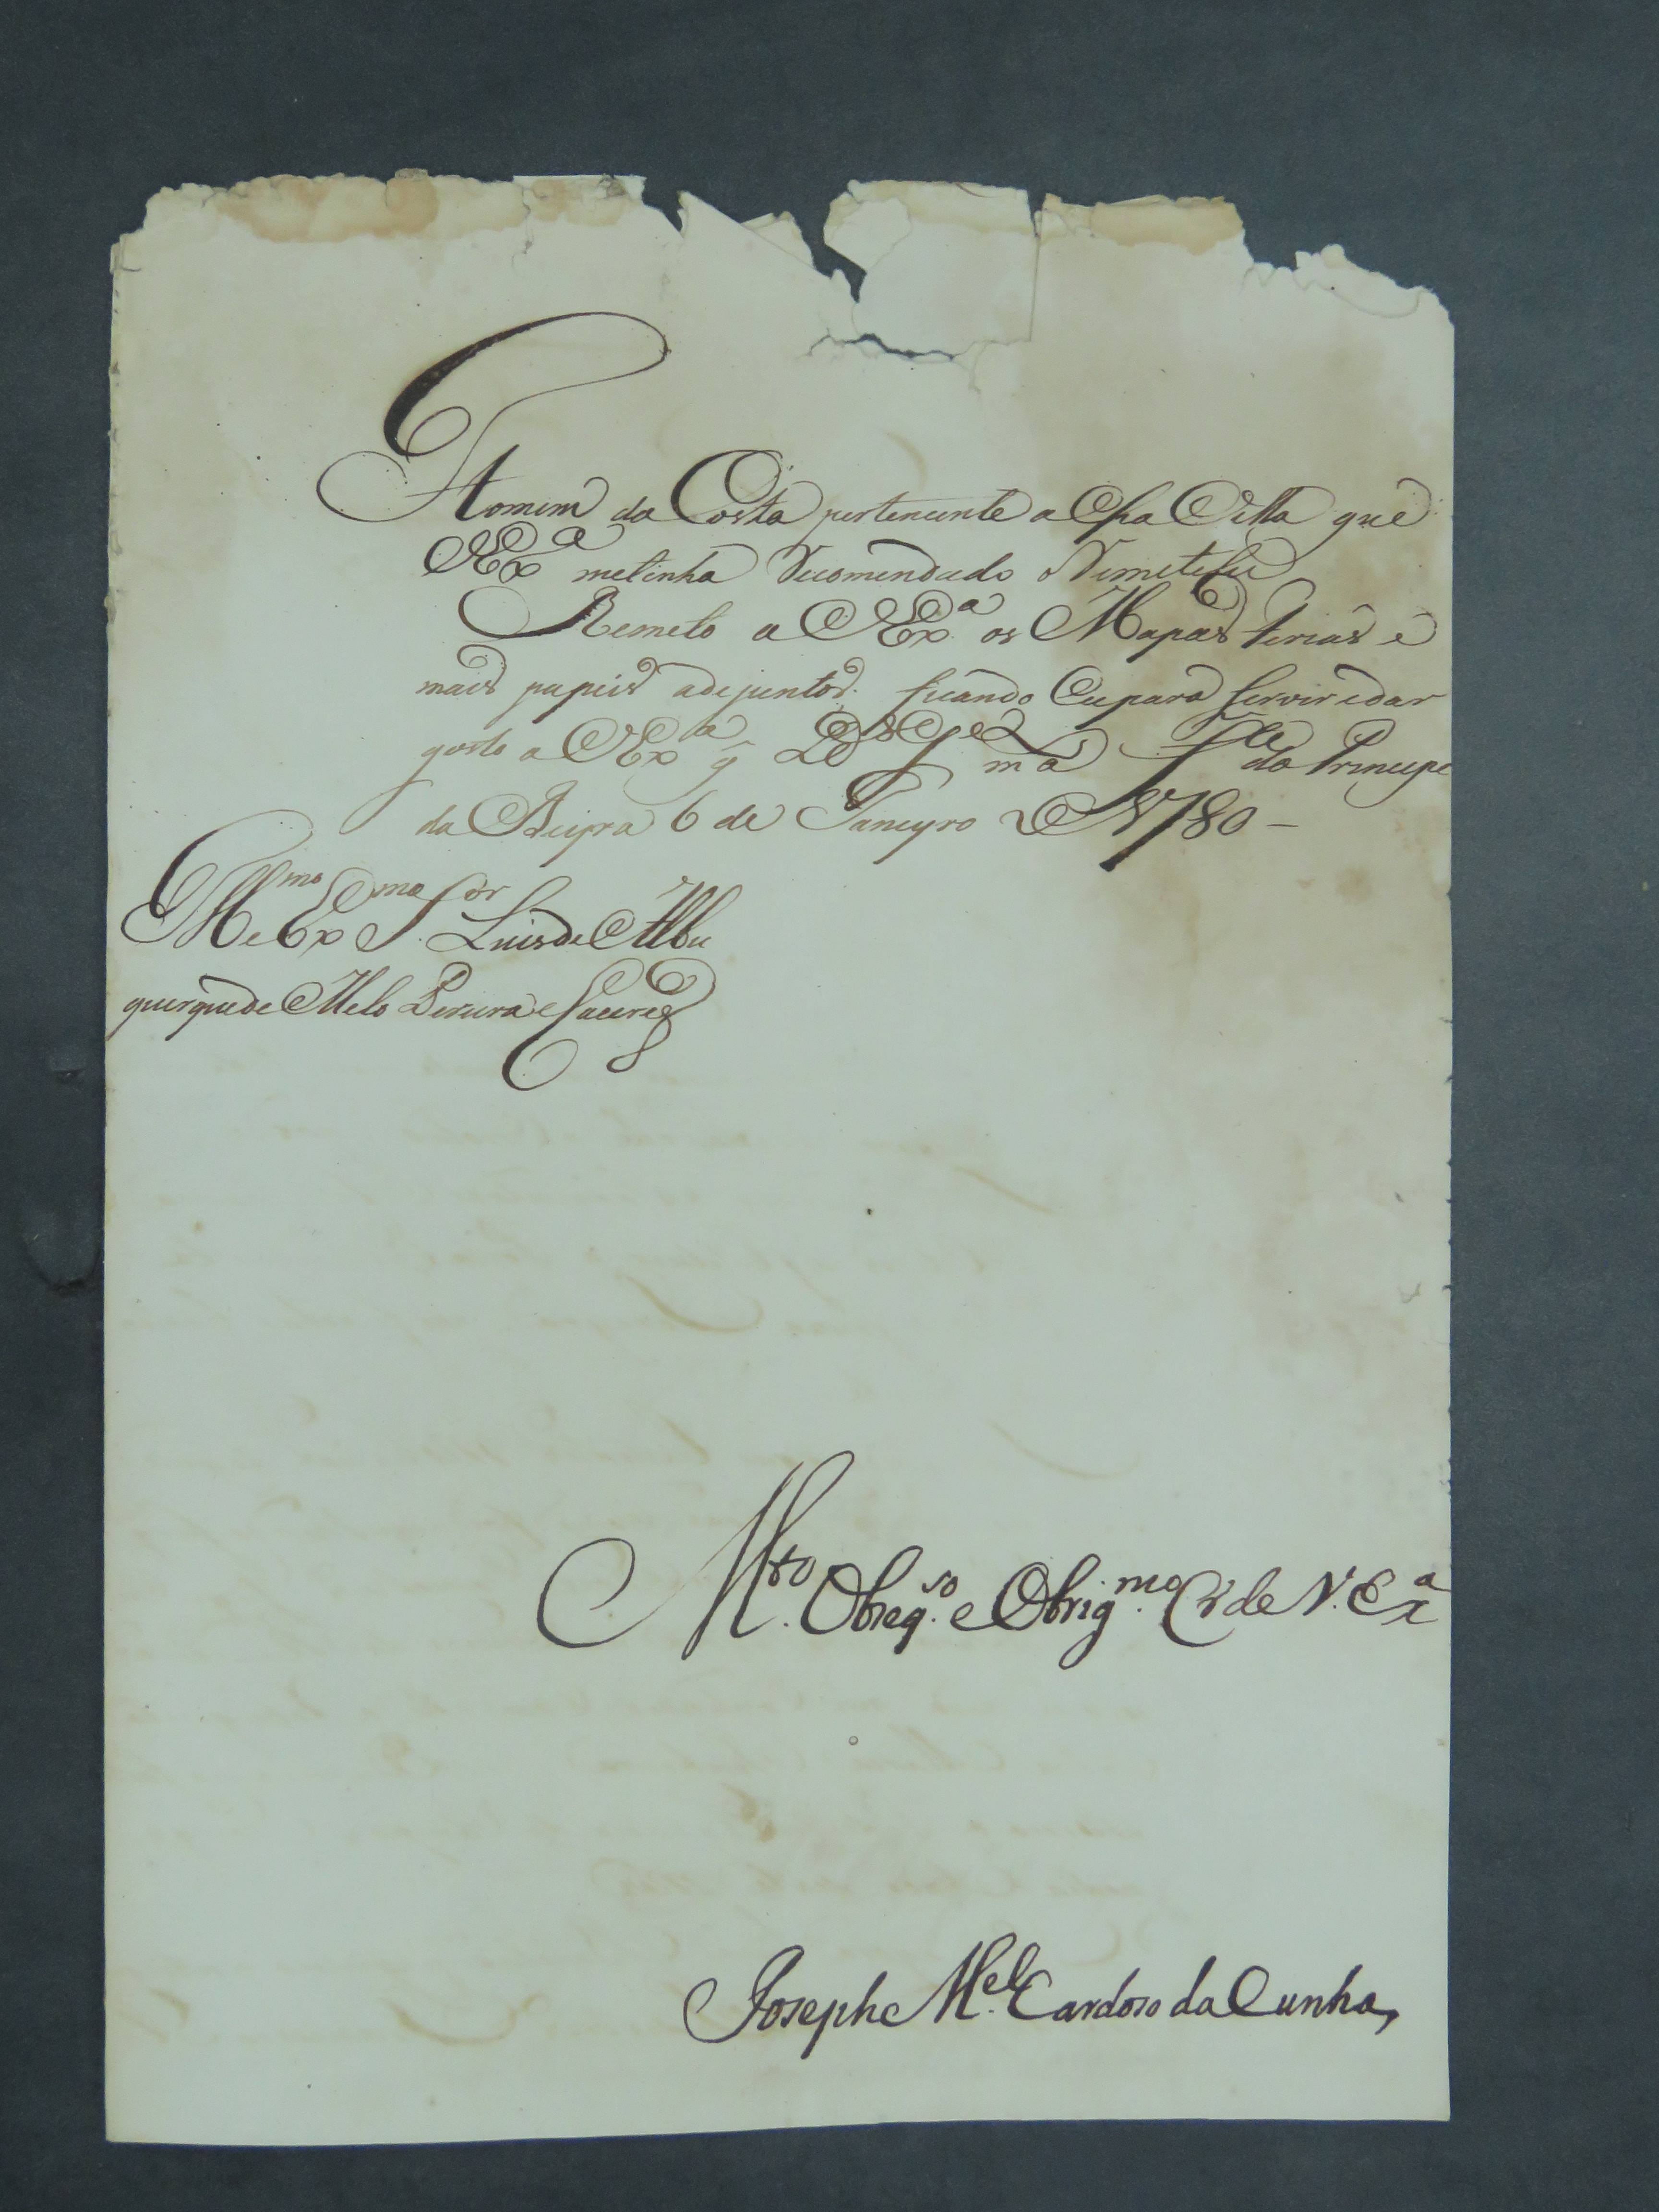 Homem da Costa pertencente a essa Villa que
VExª metinha Recomendado o Remetese
Remeto a VExª os Mapas ferias e
mais papeis adejuntos. ficando Eu para servir e dar
gosto a VExª q̃ Ds Ge mª Fte do Principe
da Beyra 6 de Janeyro de 1780 —
Illmo e Exmo Sor Luis de Albu
querque de Melo Pereira e Caceres
Mto Obseqso e Obrigmo Cr de V. Exª
Josephe Mel Cardoso da Cunha,